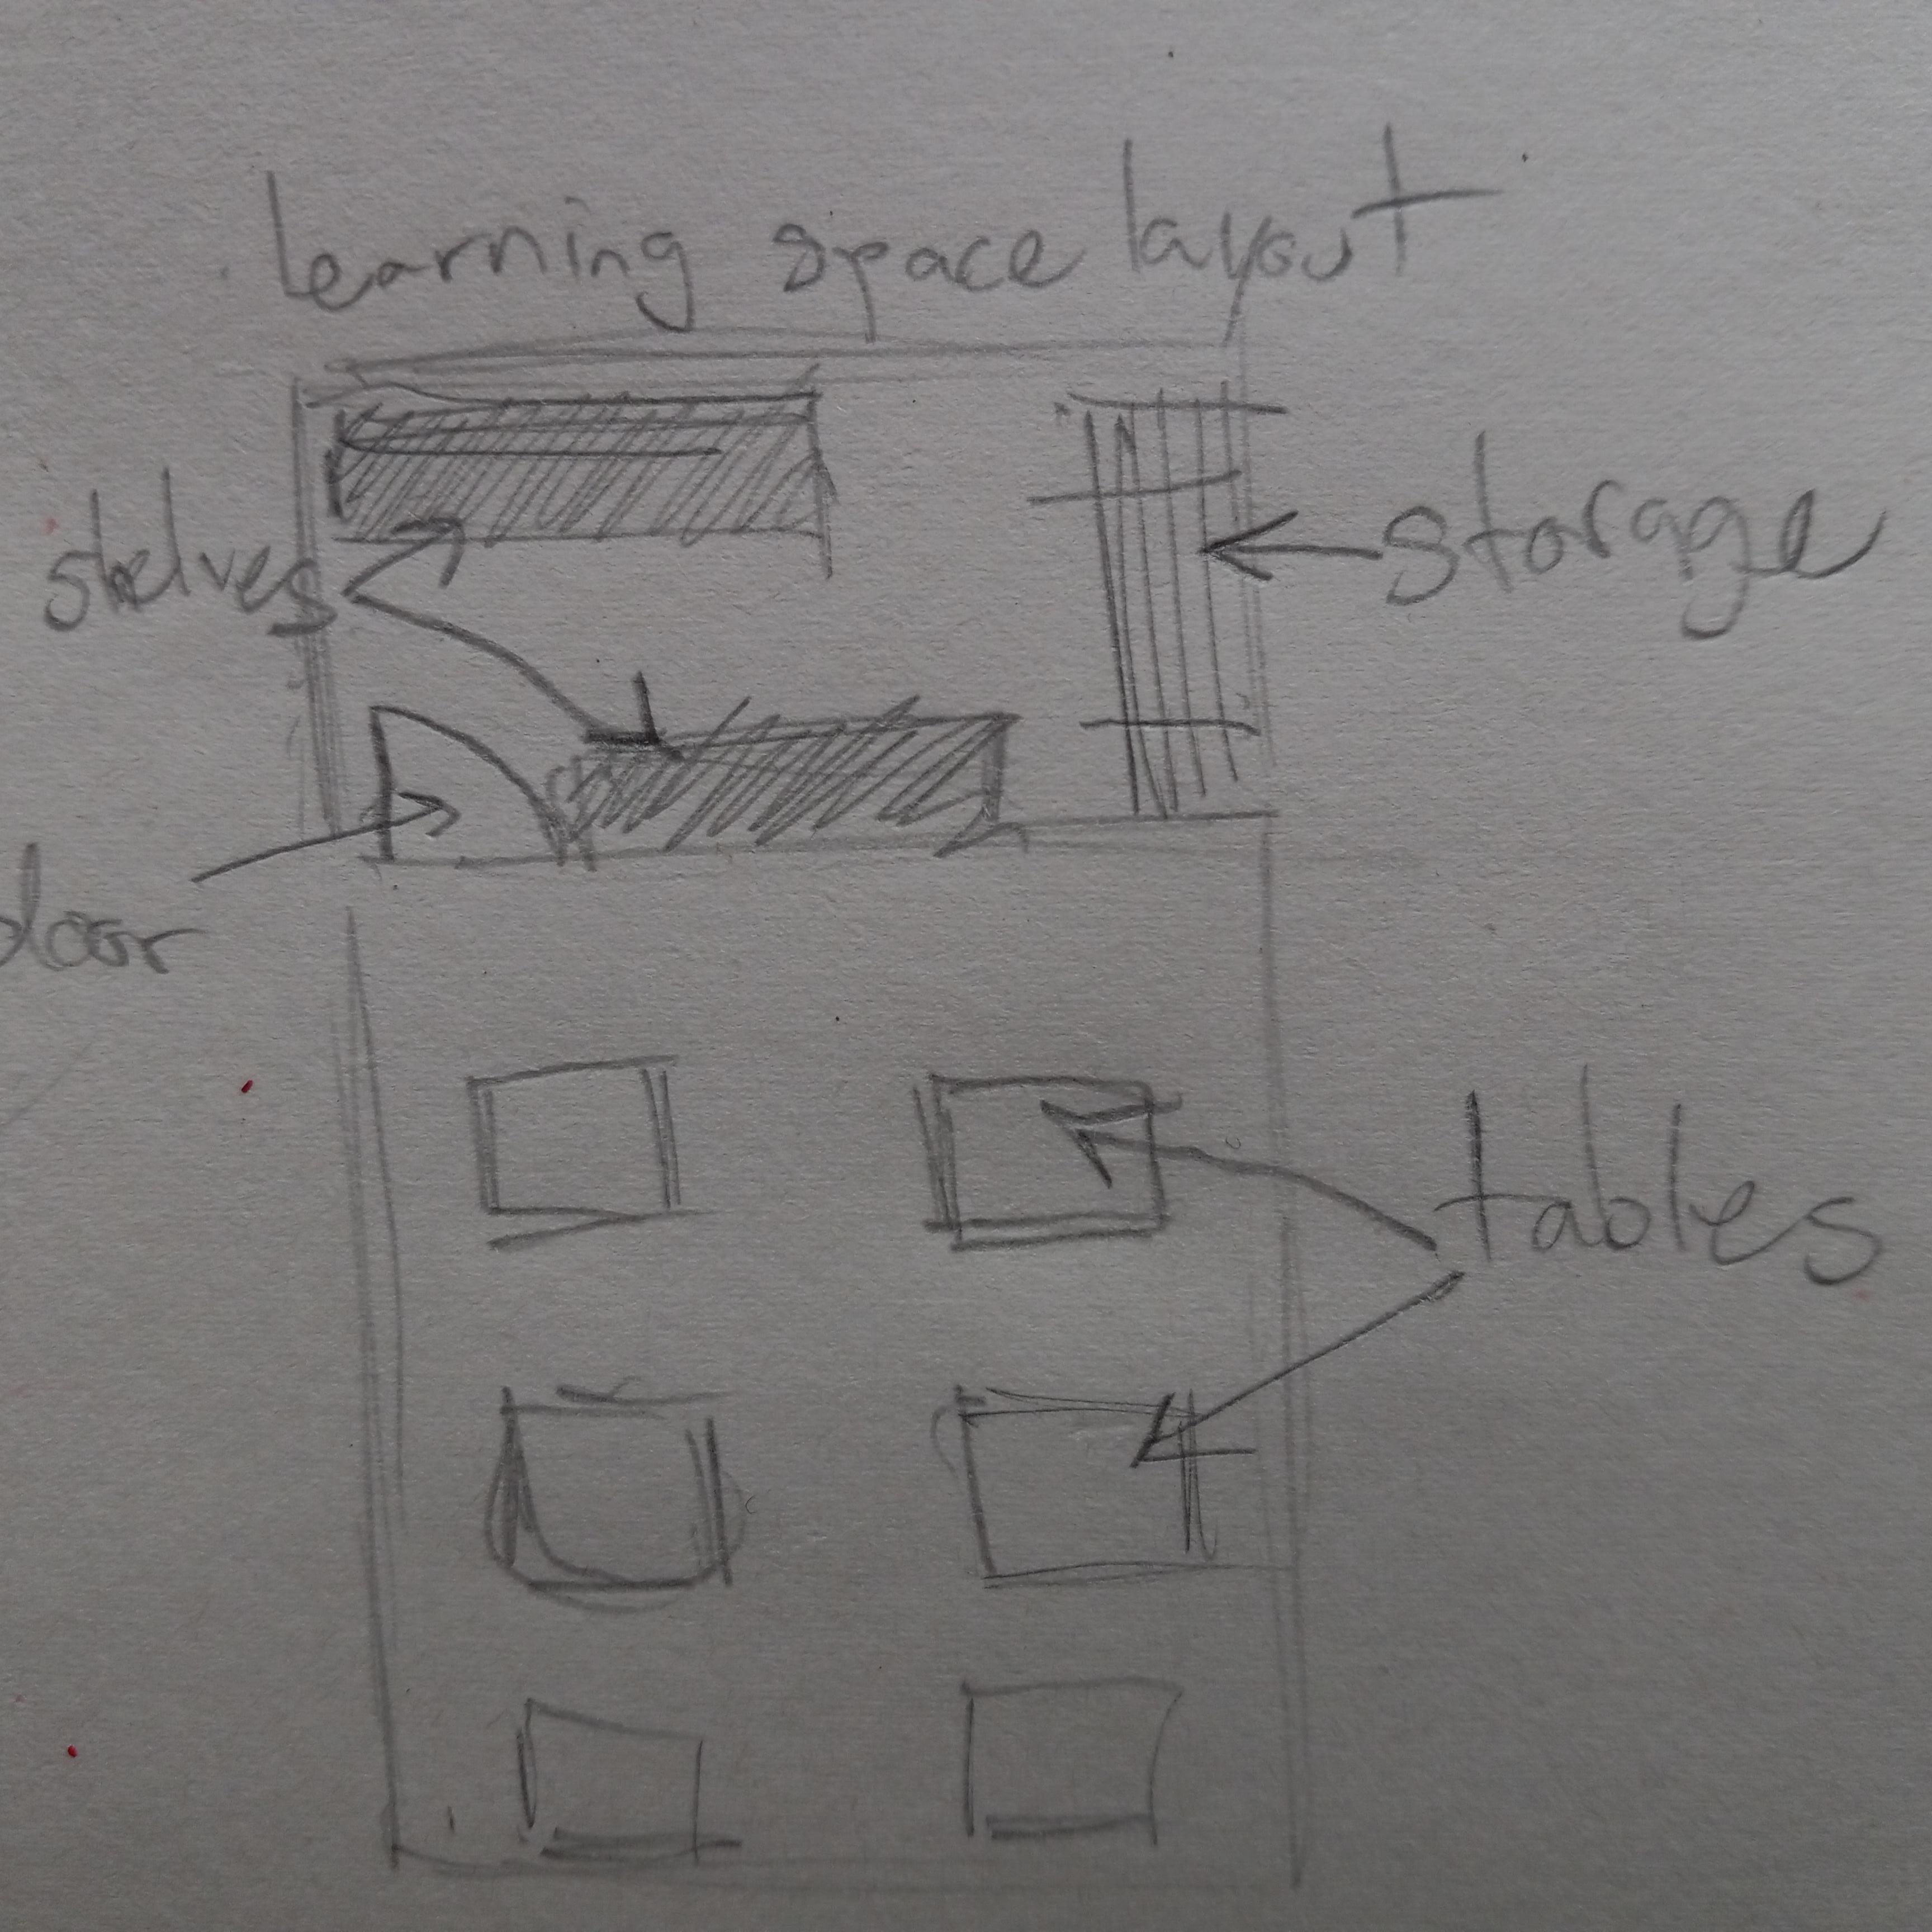 learning space layout
shelves
storage
door
tables